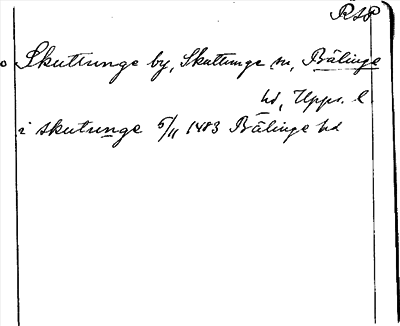 RAP
Skuttunge by, Skuttunge sn, Bälinge
hd, Upps. l
i skutunge 5/11 1483 Bälinge hd